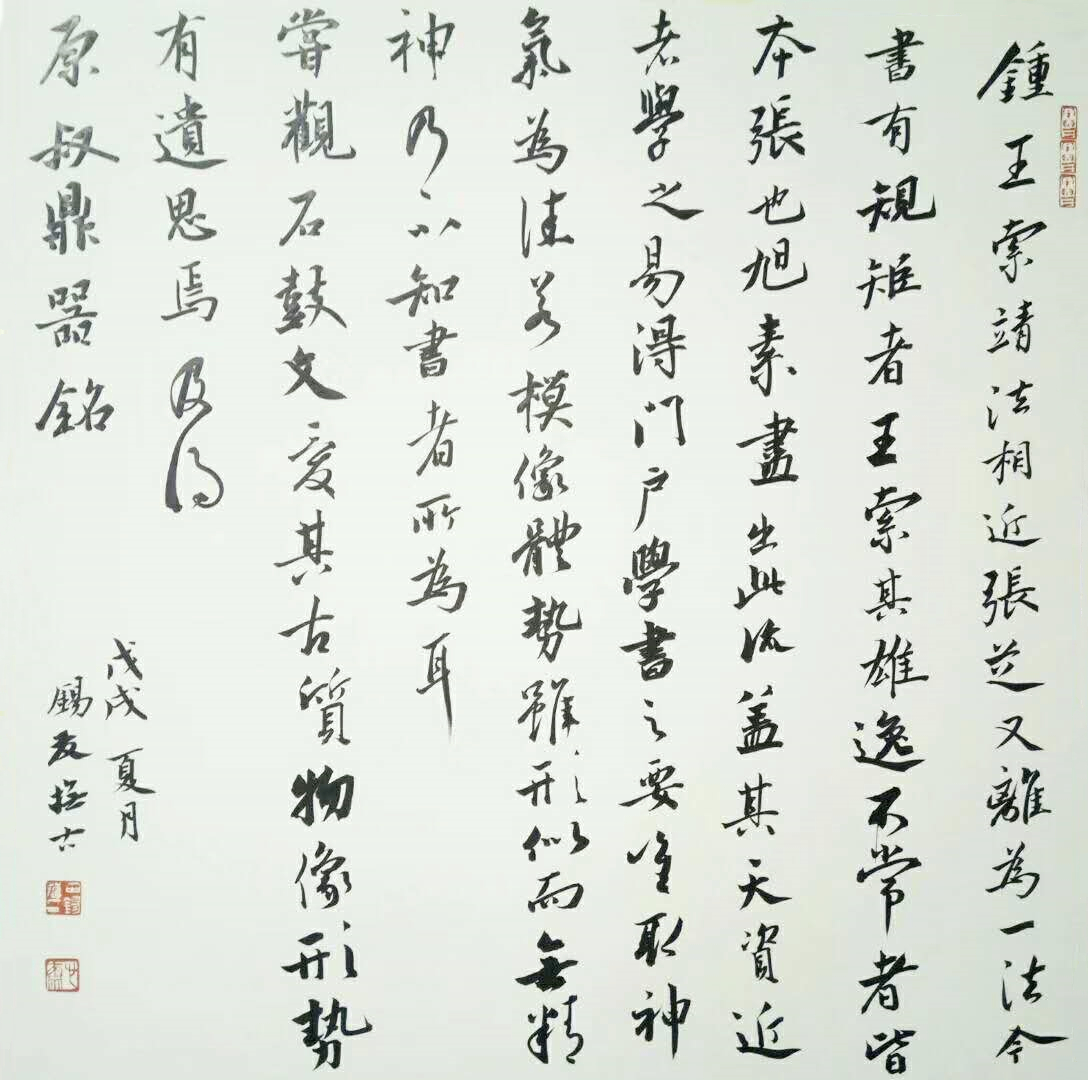 鍾王索靖法相近張芝又離為一法今
書有規矩者王索其雄逸不常者皆
本張也旭素盡出此流盖其天資近
者學之易得門户學書之要唯取神
氣為佳若模像體勢雖形似而無精
神乃不知書者所為耳
嘗觀石鼓文愛其古質物像形勢
有遺思焉及得
原叔鼎器銘
戊戌夏月
錫友撫古